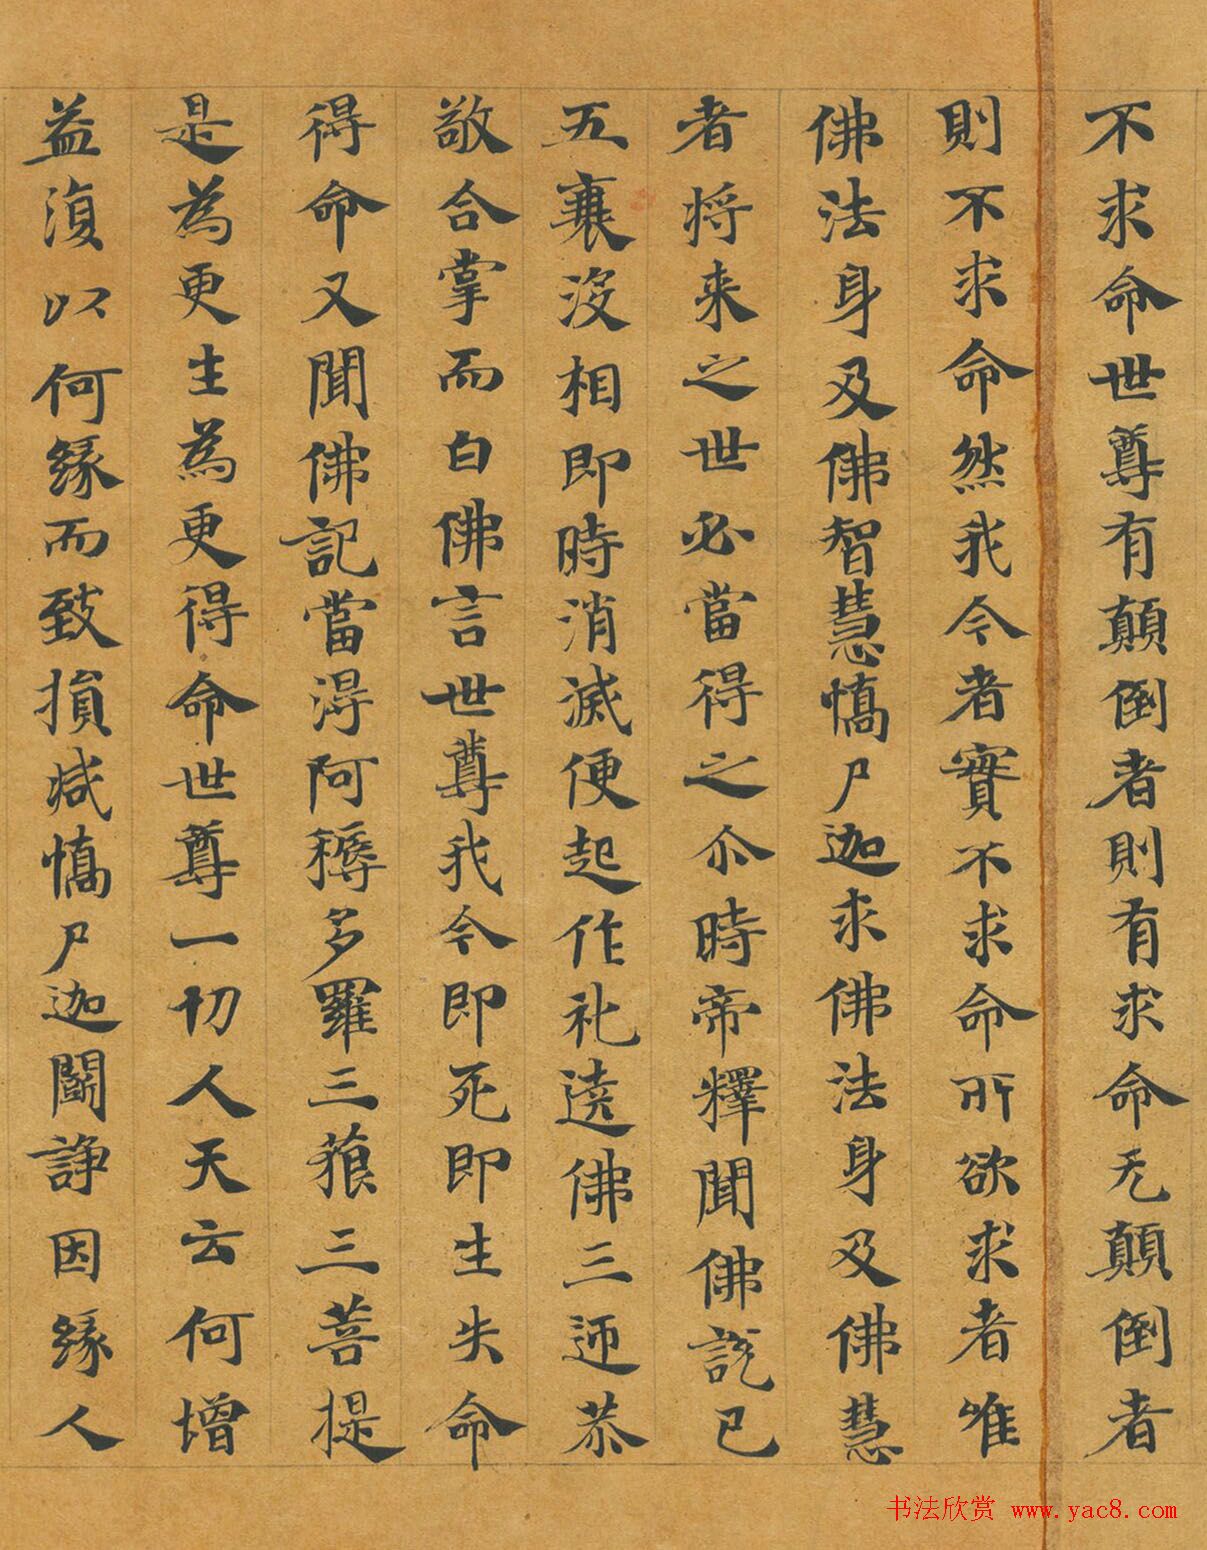 不求命世尊有顛倒者則有求命无顛倒者
則不求命然我今者實不求命所欲求者唯
佛法身及佛智慧憍尸迦求佛法身及佛慧
者將来之世必當得之尒時帝釋聞佛説已
五衰没相即時消滅便起作礼遶佛三迊恭
敬合掌而白佛言世尊我今即死即生失命
得命又聞佛記當淂阿耨多羅三藐三菩提
是為更生為更得命世尊一切人天云何增
益復以何緣而致損减憍尸迦鬪諍因緣人
书法欣赏 www.yac8.com